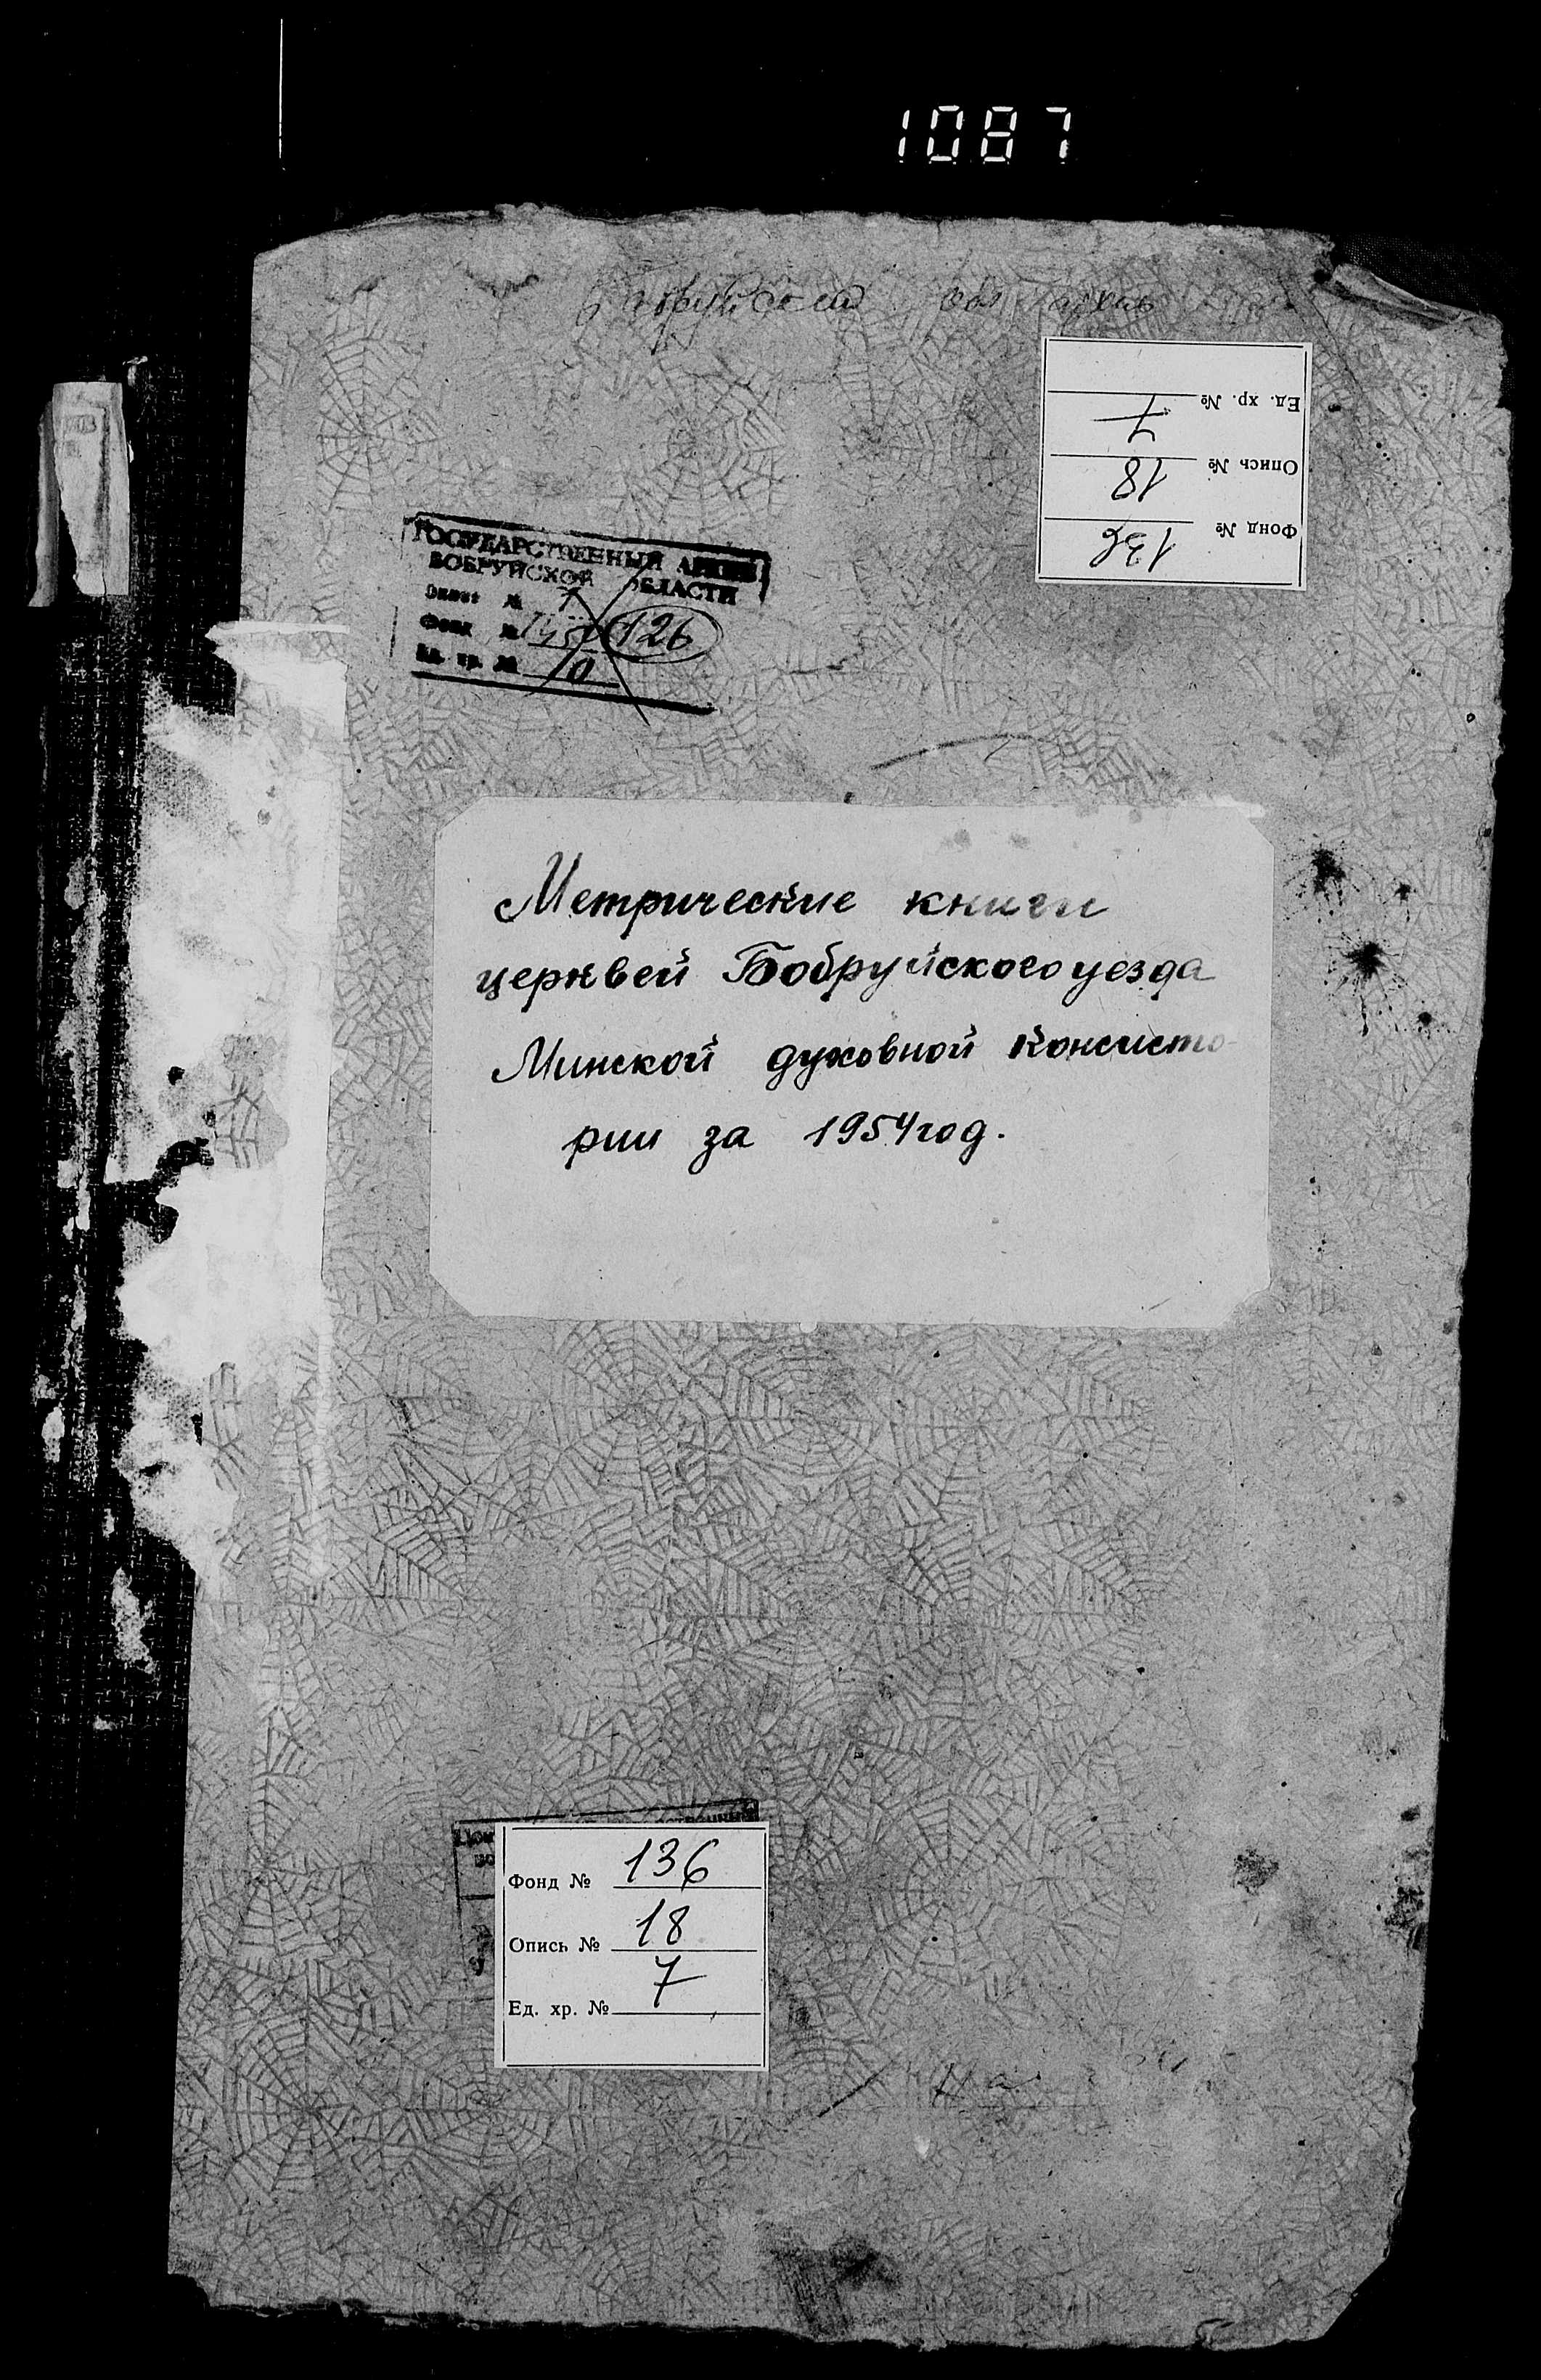 1087
обл архив
Ед. хр. № 7
Опись № 18
Фонд № 136
ГОСУДАРСТВЕННЫЙ АРХИВ
БОБРУЙСКОЙ ОБЛАСТИ
Опись № 1
Фонд № 126
Ед. хр. № 10
Метрические книги
церквей Бобруйского уезда
Минской духовной консисто-
рии за 1954 год.
Фонд № 136
Опись № 18
Ед. хр. № 7